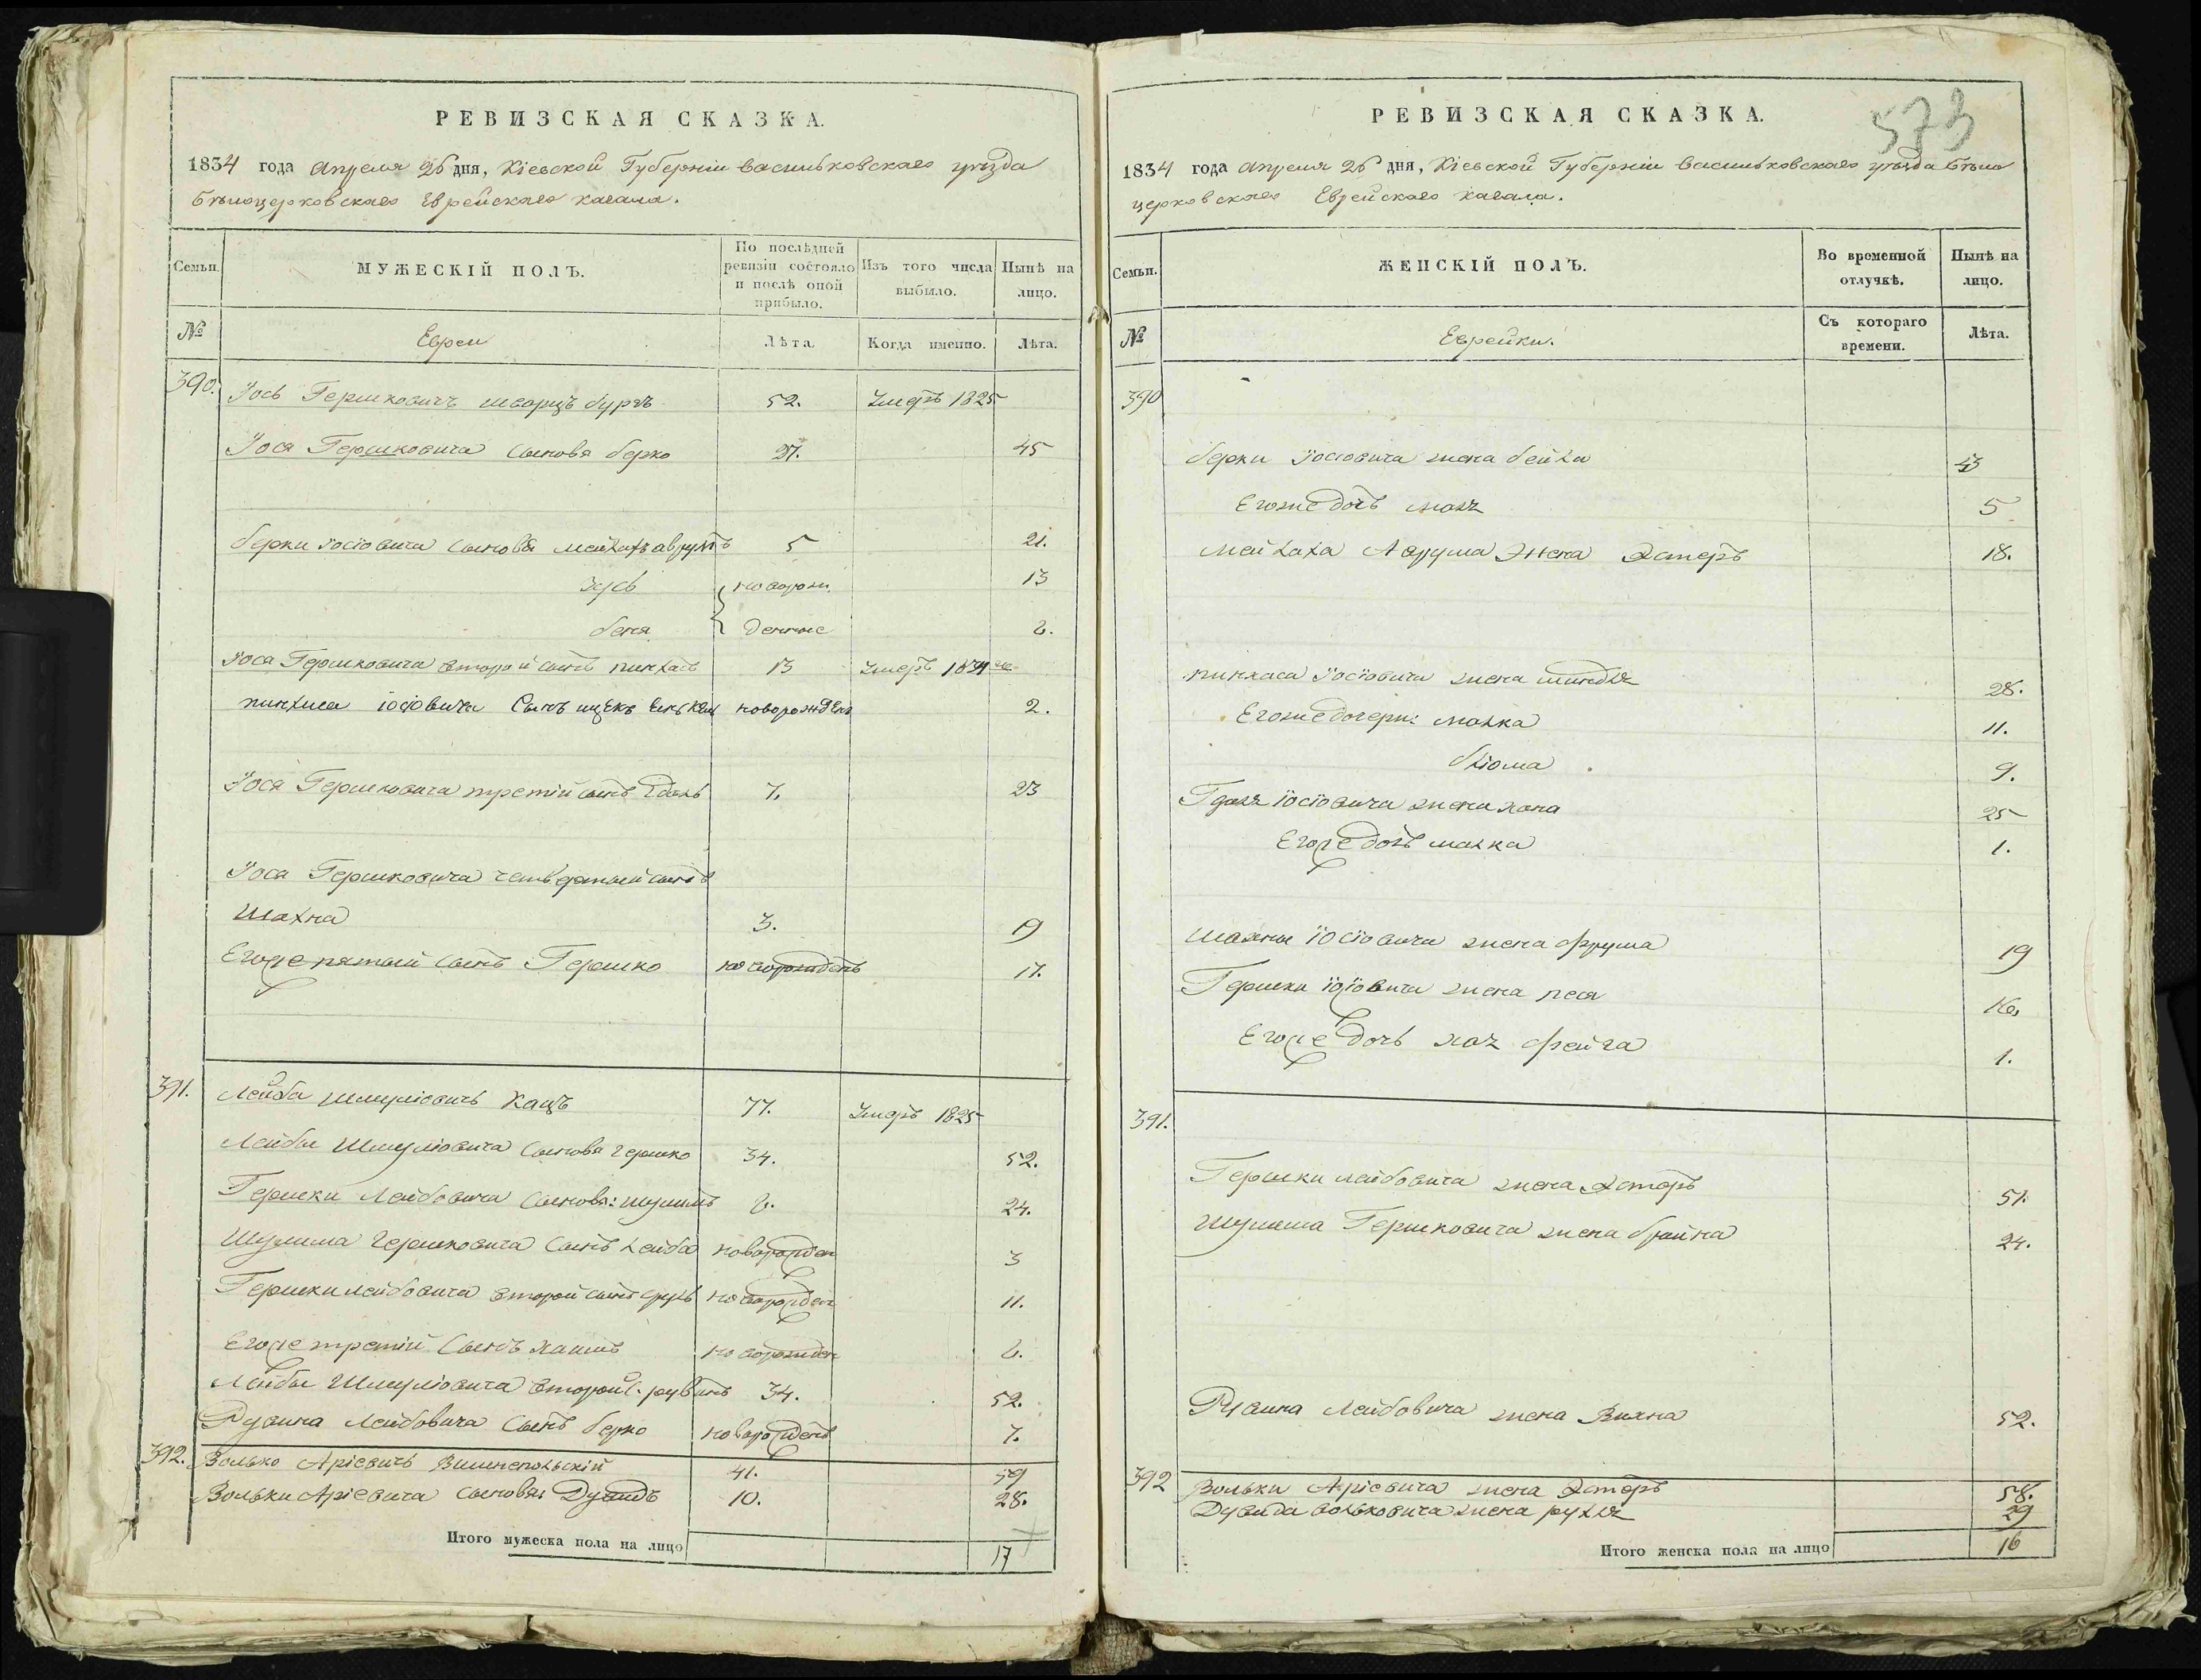 РЕВИЗСКАЯ СКАЗКА.
1834 года Апреля 26 дня, Кіевской Губерніи Васильковскаго уѣзда
Бѣлоцерковскаго Еврейскаго кагала.
Семьи.
МУЖЕСКІЙ ПОЛЪ.
По послѣдней ревизіи состояло и послѣ оной прибыло.
Изъ того числа выбыло.
Нынѣ на лицо.
№
Евреи
Лѣта
Когда именно.
Лѣта.
390. Іось Гершковичъ шварцъ бургъ 52. Умеръ 1825
Іося Гершковича сыновя берко 27. 45
берки іосіовича сыновя мейлахъ аврумъ 5 21.
зусь новорож. 13
беня денные 2.
Іося Гершковича второй сынъ пинхасъ 13 Умеръ 1834
пинхиса іосіовича Сынъ ицекъ новорожденъ 2.
Іося Гершковича третій сынъ Гдаль 7. 23
Іося Гершковича четвертый сынъ
Шахна 3. 19
Егоже пятый сынъ Гершко новорожденъ 17.
391. Лейба Шмуліовичъ Кацъ 77. Умеръ 1825
Лейбы Шмуліовича сыновя гершко 34. 52.
Гершки Лейбовича сыновя: шулимъ 6. 24.
Шулима гершковича сынъ лейба новорожден 3
Гершки лейбовича второй сынъ сруль новорожден 11.
Егоже третій сынъ хаимъ новорожден 6.
Лейбы Шмуліовича второй с. рувинъ 34. 52.
Рувина Лейбовича сынъ берко новорожденъ 7.
392. Волько Аріевичъ Вишнепольскій 41. 59
Вольки Аріевича сыновя: Дувидъ 10. 28.
Итого мужеска пола на лицо 17
573
РЕВИЗСКАЯ СКАЗКА.
1834 года Апреля 26 дня, Кіевской Губерніи Васильковскаго уѣзда Бѣло
церковскаго Еврейскаго кагала.
Семьи.
ЖЕНСКІЙ ПОЛЪ.
Во временной отлучкѣ.
Нынѣ на лицо.
№
Еврейки.
Съ котораго времени.
Лѣта.
390
берки іосіовича жена бейла 43
Егоже дочь 5
Мейлаха Аврума жена Эстеръ 18.
пинхаса іосіовича жена шиндля 28.
Егоже дочери: малка 11.
блюма 9.
Гдаля іосіовича жена хана 25
Егоже дочь малка 1.
Шахны іосіовича жена фрума 19
Гершки іосіовича жена песя 16.
Егоже дочь хая фейга 1.
391.
Гершки лейбовича жена Эстеръ 51.
Шулима Гершковича жена брайна 24.
Рувина Лейбовича жена Вихна 52.
392 Вольки Аріовича жена Эстеръ 58.
Дувида вольковича жена рухля 29
Итого женска пола на лицо 16